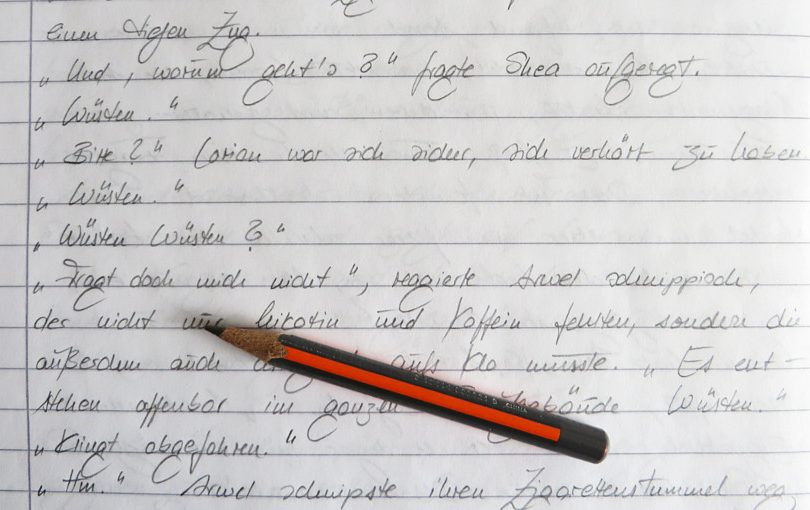 einen tiefen Zug.
„Und, worum geht's?“ fragte Shea aufgeregt.
„Wüsten.“
„Bitte?“ Corian war sich sicher, sich verhört zu haben
„Wüsten.“
„Wüsten Wüsten?“
„Fragt doch mich nicht“, reagierte Arwel schnippisch,
der nicht nur Nikotin und Koffein fehlten, sondern die
außerdem auch aufs Klo musste. „Es ent-
stehen offenbar im ganzen Wüsten.“
„Klingt abgefahren.“
„Hm.“ Arwel schnipste ihren Zigarettenstummel weg